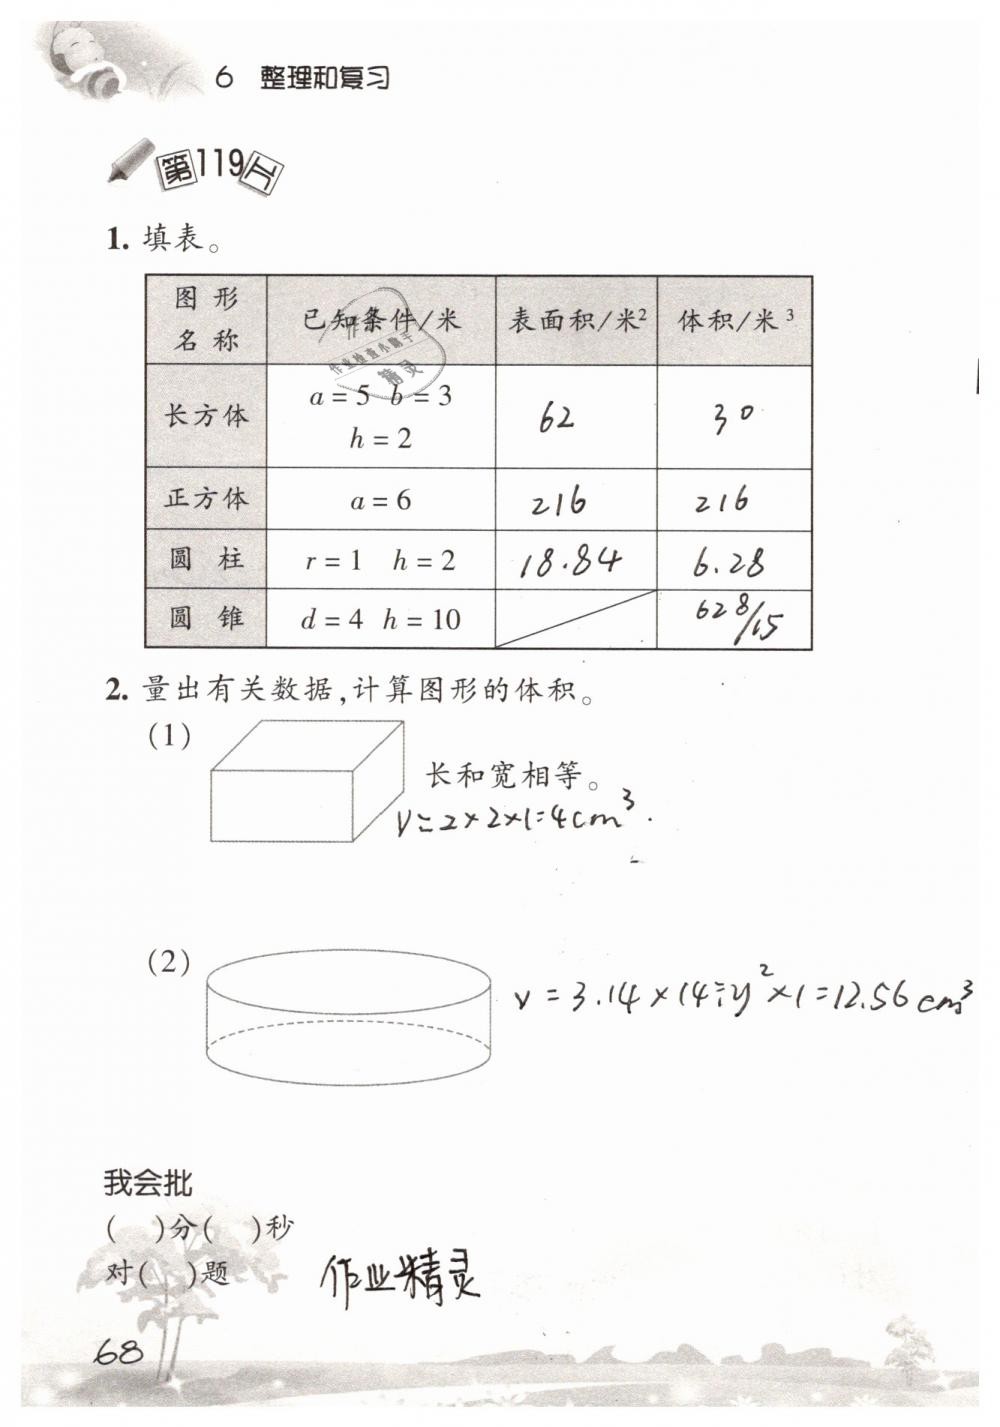 6 整理和复习
第119天
1. 填表。
图形名称 已知条件/米 表面积/米² 体积/米³
长方体 a=5 b=3 h=2 62 30
正方体 a=6 216 216
圆柱 r=1 h=2 18.84 6.28
圆锥 d=4 h=10 628/15
作业检查小助手
精灵
2. 量出有关数据,计算图形的体积。
(1)
长和宽相等。
V=2×2×1=4cm³.
(2)
v=3.14×(4÷2)²×1=12.56cm³
我会批
( )分( )秒
对( )题
作业精灵
68